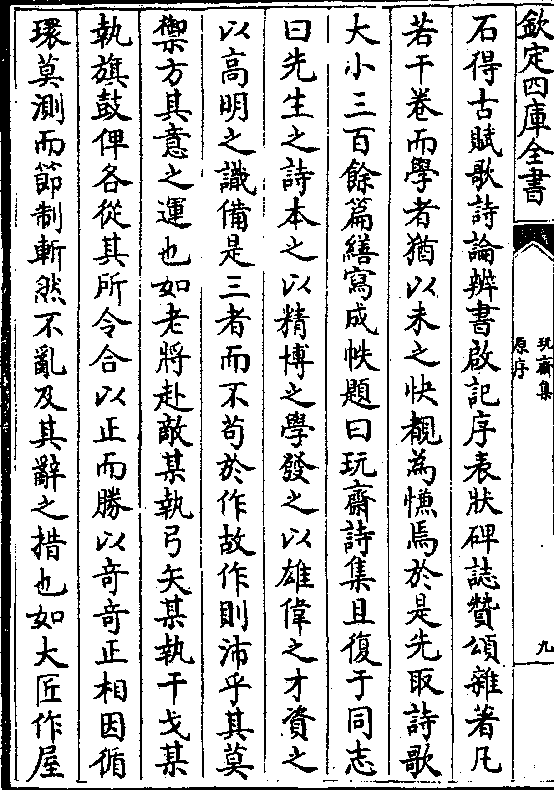 欽定四庫全書
玩齋集
原序
九
石得古賦歌詩論辨書啟記序表狀碑誌贊頌雜著凡
若干卷而學者猶以未之快覩為慊焉於是先取詩歌
大小三百餘篇繕寫成帙題曰玩齋詩集且復于同志
曰先生之詩本之以精博之學發之以雄偉之才資之
以高明之識備是三者而不苟於作故作則沛乎其莫
禦方其意之運也如老將赴敵某執弓矢某執干戈某
執旗鼓俾各從其所令合以正而勝以奇奇正相因循
環莫測而節制斬然不亂及其辭之措也如大匠作屋